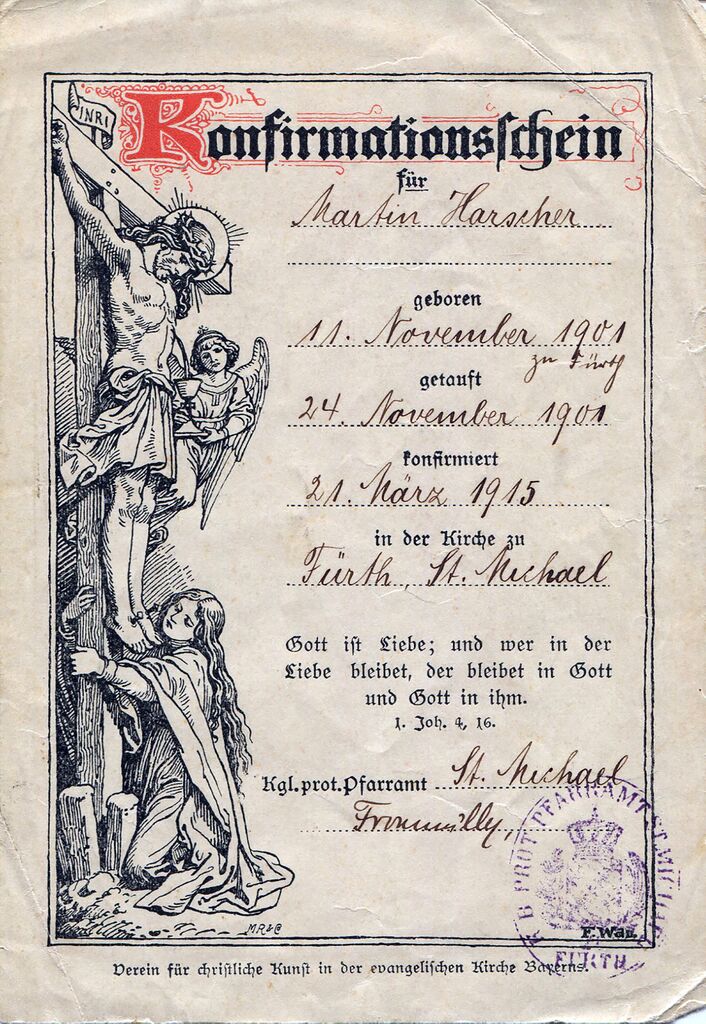 INRI
Konfirmationsschein
für
Martin Harscher
geboren
11. November 1901
zu Fürth
getauft
24. November 1901
konfirmiert
21. März 1915
in der Kirche zu
Fürth, St. Michael
Gott ist Liebe; und wer in der
Liebe bleibet, der bleibet in Gott
und Gott in ihm.
1. Joh. 4, 16.
Kgl. prot. Pfarramt St. Michael
K B PROT. PFARRAMT ST. MICHAEL
FÜRTH
MR&C
Verein für christliche Kunst in der evangelischen Kirche Bayerns.